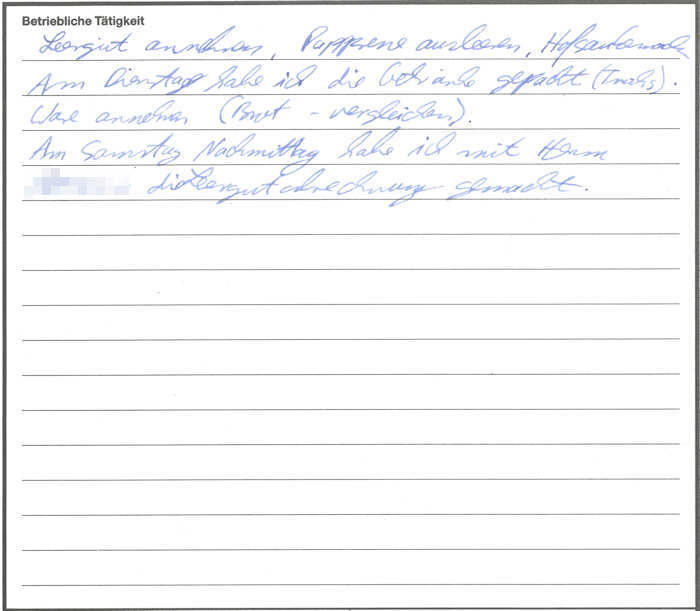 Betriebliche Tätigkeit
Leergut annehmen, Papprene ausleeren, Hof
Am Dienstag habe ich die Getränke gepackt
Ware annehmen (Brot - vergleichen).
Am Samstag Nachmittag habe ich mit Herrn
die Leergutabrechnung gemacht.